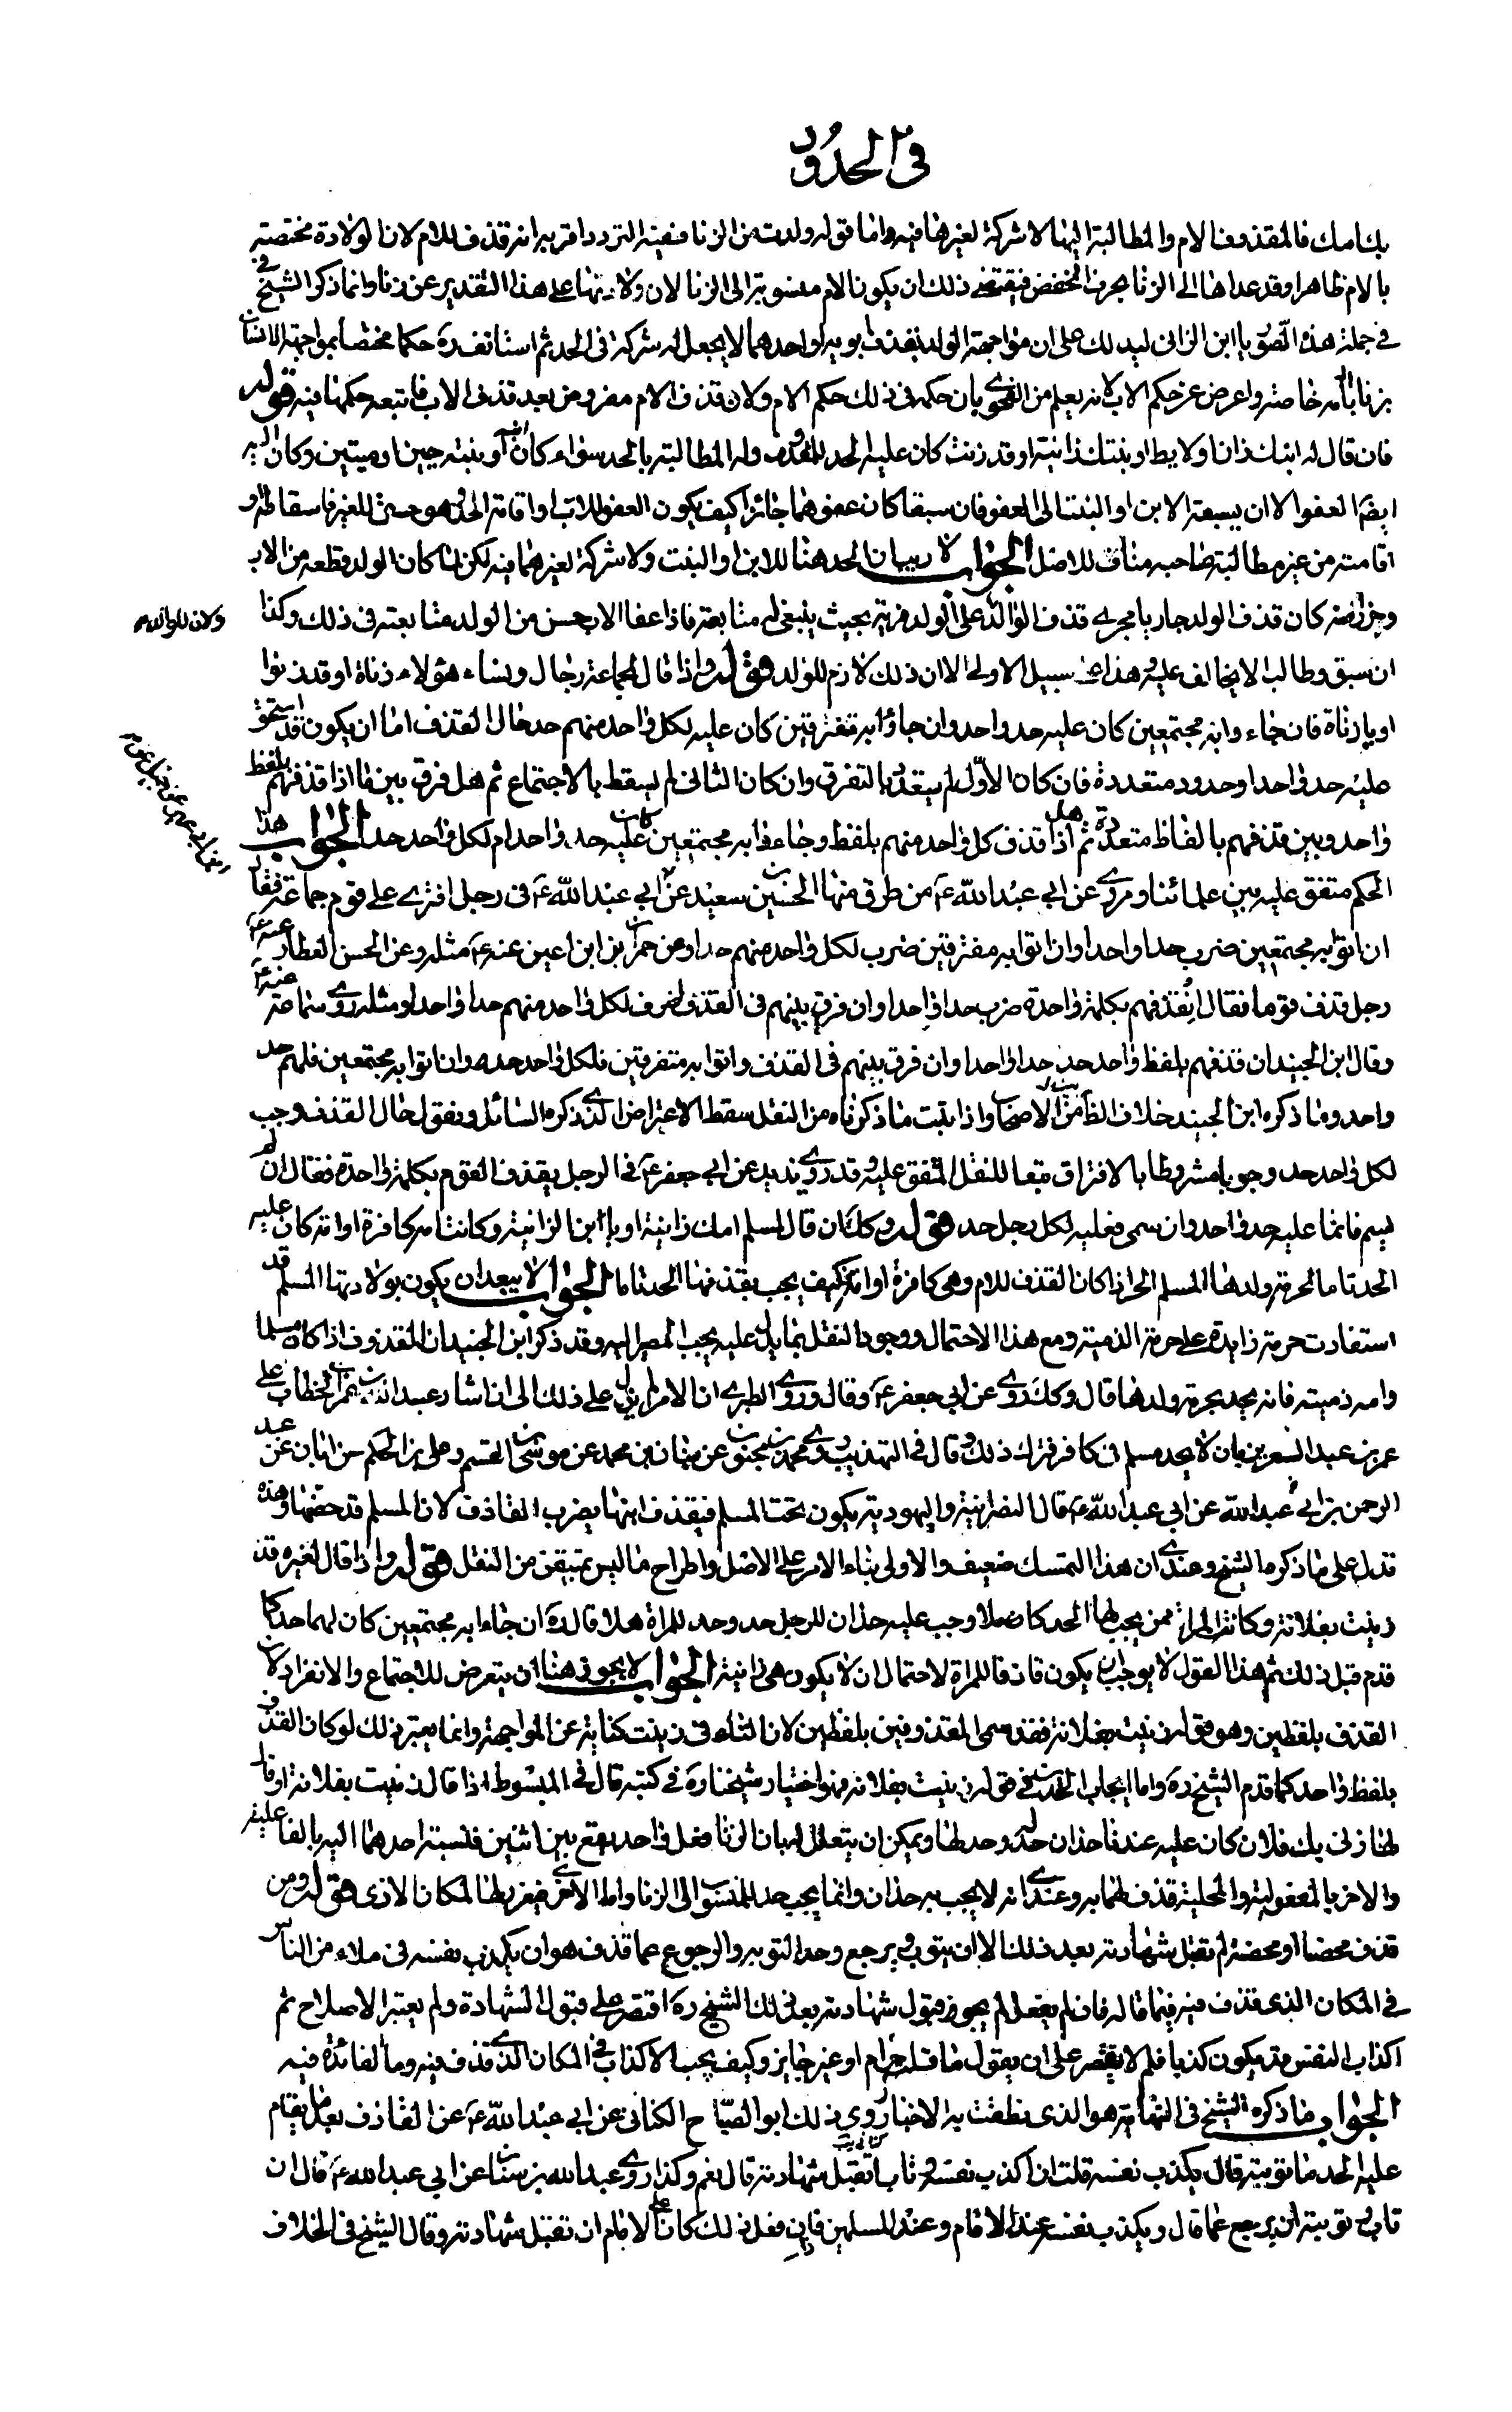 في الحدود
بك امك فالمقذوف الام والمطالبة اليها لا شركة لغيرها فيه واما قوله ولدت من الزنا ففيه التردد اقربه انه قذف للام لان الولادة مختصة
بالام ظاهرا وقد عداها الى الزنا بحرف الخفض فيقتضي ذلك ان يكون الام منسوبة الى الزنا لان ولادتها على هذا التقدير عن زنا وانما ذكر الشيخ
في جملة هذه الصور يا ابن الزاني ليدلك على ان مواجهة الولد بقذف ابويه او احدهما لا يجعل له شركة في الحد ثم استأنف ره حكما مختصا بمواجهة الانسان
بزنا امه خاصة واعرض عن حكم الاب لانه يعلم من الفحوى بان حكمه في ذلك حكم الام ولان قذف الام مفروض بعد قذف الاب فاتبعه حكمها فيه قوله
فان قال له ابنك زان او لايط او بنتك زانية او قد زنت كان عليه الحد للمقذوف وله المطالبة بالحد سواء كان ابنه او بنته حيين او ميتين وكان اليه
ايضا العفو الا ان يسبقه الابن او البنت الى العفو فان سبقا كان عفوهما جائزا كيف يكون العفو للاب او اقامة الحد وهو حق للغير فاسقاطه او
اقامته من غير مطالبة صاحبه مناف للاصل الجواب لا ريب ان الحد هنا للابن او البنت ولا شركة لغيرهما فيه لكن لما كان الولد قطعة من الاب
كان قذف الولد جاريا مجرى قذف الوالد على الولد مزية بحيث ينبغي له متابعته فاذا عفا الاب حسن من الولد متابعته في ذلك وكذا
ولان للوالد
ان سبق وطالب لا يخالف عليه وهذا على سبيل الاولى لا ان ذلك لازم للولد قوله واذا قال لجماعة رجال ونساء هؤلاء زناة او قد زنوا
او يا زناة فان جاءوا به مجتمعين كان عليه حد واحد وان جاؤا به متفرقين كان عليه لكل واحد منهم حد حال القذف اما ان يكون قد استحق
عليه حد واحد او حدود متعددة فان كان الاول لم يتعدد بالتفرق وان كان الثاني لم يسقط بالاجتماع ثم هل فرق بين ما اذا قذفهم بلفظ
واحد وبين قذفهم بالفاظ متعددة ثم هل اذا قذف كل واحد منهم بلفظ وجاءوا به مجتمعين كان عليه حد واحد ام لكل واحد حد الجواب هذا
الحكم متفق عليه بين علمائنا ومروي عن ابي عبد الله ع من طرق منها الحسين بن سعيد عن ابي عبد الله ع في رجل افترى على قوم جماعة فقال
ان اتوا به مجتمعين ضرب حدا واحدا وان اتوا به مفترقين ضرب لكل واحد منهم حدا وعن حمران بن اعين عنه ع مثله وعن الحسن العطار عنه ع
رجل قذف قوما فقال ان قذفهم بكلمة واحدة ضرب حدا واحدا وان فرق بينهم في القذف ضرب لكل واحد منهم حدا واحدا ومثله روى سماعة عنه ع
وقال ابن الجنيد ان قذفهم بلفظ واحد حد حدا واحدا وان فرق بينهم في القذف واتوا به متفرقين فلكل واحد حده وان اتوا به مجتمعين فلهم حد
واحد وما ذكره ابن الجنيد خلاف الظاهر من الاصحاب واذا ثبت ما ذكرناه من النقل سقط الاعتراض الذي ذكره السائل ونقول حال القذف وجب
لكل واحد حد وجوبا مشروطا بالافتراق تبعا للنقل المتفق عليه وقد روى بريد عن ابي جعفر ع في الرجل يقذف القوم بكلمة واحدة فقال ان لم
يسم فانما عليه حد واحد وان سمى فعليه لكل رجل حد قوله وكك ان قال لمسلم امك زانية او يا ابن الزانية وكانت امه كافرة او امة كان عليه
الحد تاما لحرمة ولدها المسلم الحر اذا كان القذف للام وهي كافرة او امة كيف يجب بقذفها الحد تاما الجواب لا يبعد ان يكون بولادتها المسلم قد
استفادت حرمة زايدة على حرمة الذمية ومع هذا الاحتمال ووجود النقل بما يدل عليه يجب المصير اليه وقد ذكر ابن الجنيد ان المقذوف اذا كان مسلما
وامه ذمية فانه يحد بحرمة ولدها قال وكك روى عن ابي جعفر ع وقال وروى الطبري ان الامر لم يزل على ذلك الى ان اشار عبد الله بن عمر بن الخطاب على
عمر بن عبد العزيز بان لا يحد مسلم في كافر فترك ذلك وقال في التهذيب روى محمد بن محبوب عن بنان بن محمد عن موسى بن القسم وعلي بن الحكم عن ابان عن عبد
الرحمن بن ابي عبد الله عن ابي عبد الله ع قال النصرانية واليهودية يكون تحت المسلم فيقذف ابنها يضرب القاذف لان المسلم قد حصنها وهذه
تدل على ما ذكره الشيخ وعندي ان هذا التمسك ضعيف والاولى بناء الامر على الاصل واطراح ما ليس بمتيقن من النقل قوله واذا قال لغيره قد
زنيت بفلانة وكانت المراة ممن يجب لها الحد كاملا وجب عليه حدان للرجل حد وحد للمراة هلا قال ره ان جاءا به مجتمعين كان لهما حد كما
قدم قبل ذلك ثم هذا القول لا يوجب ان يكون قاذفا للمراة لاحتمال ان لا يكون هي زانية الجواب لا يجوز هنا ان يتعرض للاجتماع والانفراد لان
القذف بلفظين وهو قوله زنيت بفلانة فقد سمى المقذوفين بلفظين لان التاء في زنيت كناية عن المواجهة وانما يعتبر ذلك لو كان القذف
بلفظ واحد كما قدم الشيخ ره واما ايجاب الحدين في قوله زنيت بفلانة فهو اختيار شيخنا ره في كتبه قال في المبسوط اذا قال زنيت بفلانة او قال
لها زنى بك فلان كان عليه عندنا حدان حد له وحد لها ويمكن ان يتعلل له بان الزنا فعل واحد يقع بين اثنين فنسبة احدهما اليه بالفاعلية
والاخر بالمفعولية والمحلية قذف لهما به وعندي انه لا يجب به حدان وانما يجب حد للمنسوب الى الزنا واما الاخرى فيعزر لها لمكان الاذى قوله ومن
قذف محصنا او محصنة لم تقبل شهادته بعد ذلك الا ان يتوب ويرجع وحد التوبة والرجوع عما قذف هو ان يكذب نفسه في ملاء من الناس
في المكان الذي قذف فيه فيما قاله فان لم يفعل لم يجز قبول شهادته بعد ذلك الشيخ ره اقتصر على قبول الشهادة ولم يعتبر الاصلاح ثم
اكذاب النفس قد يكون كذبا فلم لا يقتصر على ان يقول ما قلت حرام او غير جايز وكيف يجب الاكذاب في المكان الذي قذف فيه وما الفائدة فيه
الجواب ما ذكره الشيخ في النهاية هو الذي نطقت به الاخبار روى ذلك ابو الصباح الكناني عن ابي عبد الله ع عن القاذف بعد ما يقام
عليه الحد ما توبته قال يكذب نفسه قلت ان اكذب نفسه وتاب اتقبل شهادته قال نعم وكذا روى عبد الله بن سنان عن ابي عبد الله ع قال ان
تاب وتوبته ان يرجع عما قال ويكذب نفسه عند الامام وعند المسلمين فان فعل ذلك كان على الامام ان تقبل شهادته وقال الشيخ في الخلاف